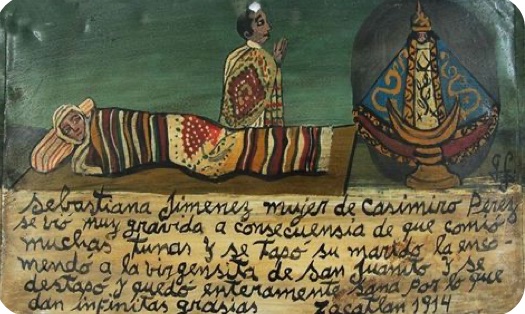 Sebastiana Jimenez mujer de Casimiro Perez
se vió muy gravida a consecuensia de que comió
muchas tunas y se tapó su marido la enco-
mendó a la virgensita de san Juanito y se
destapó y quedó enteramente sana por lo que
dan infinitas grasias Zacatlan 1914